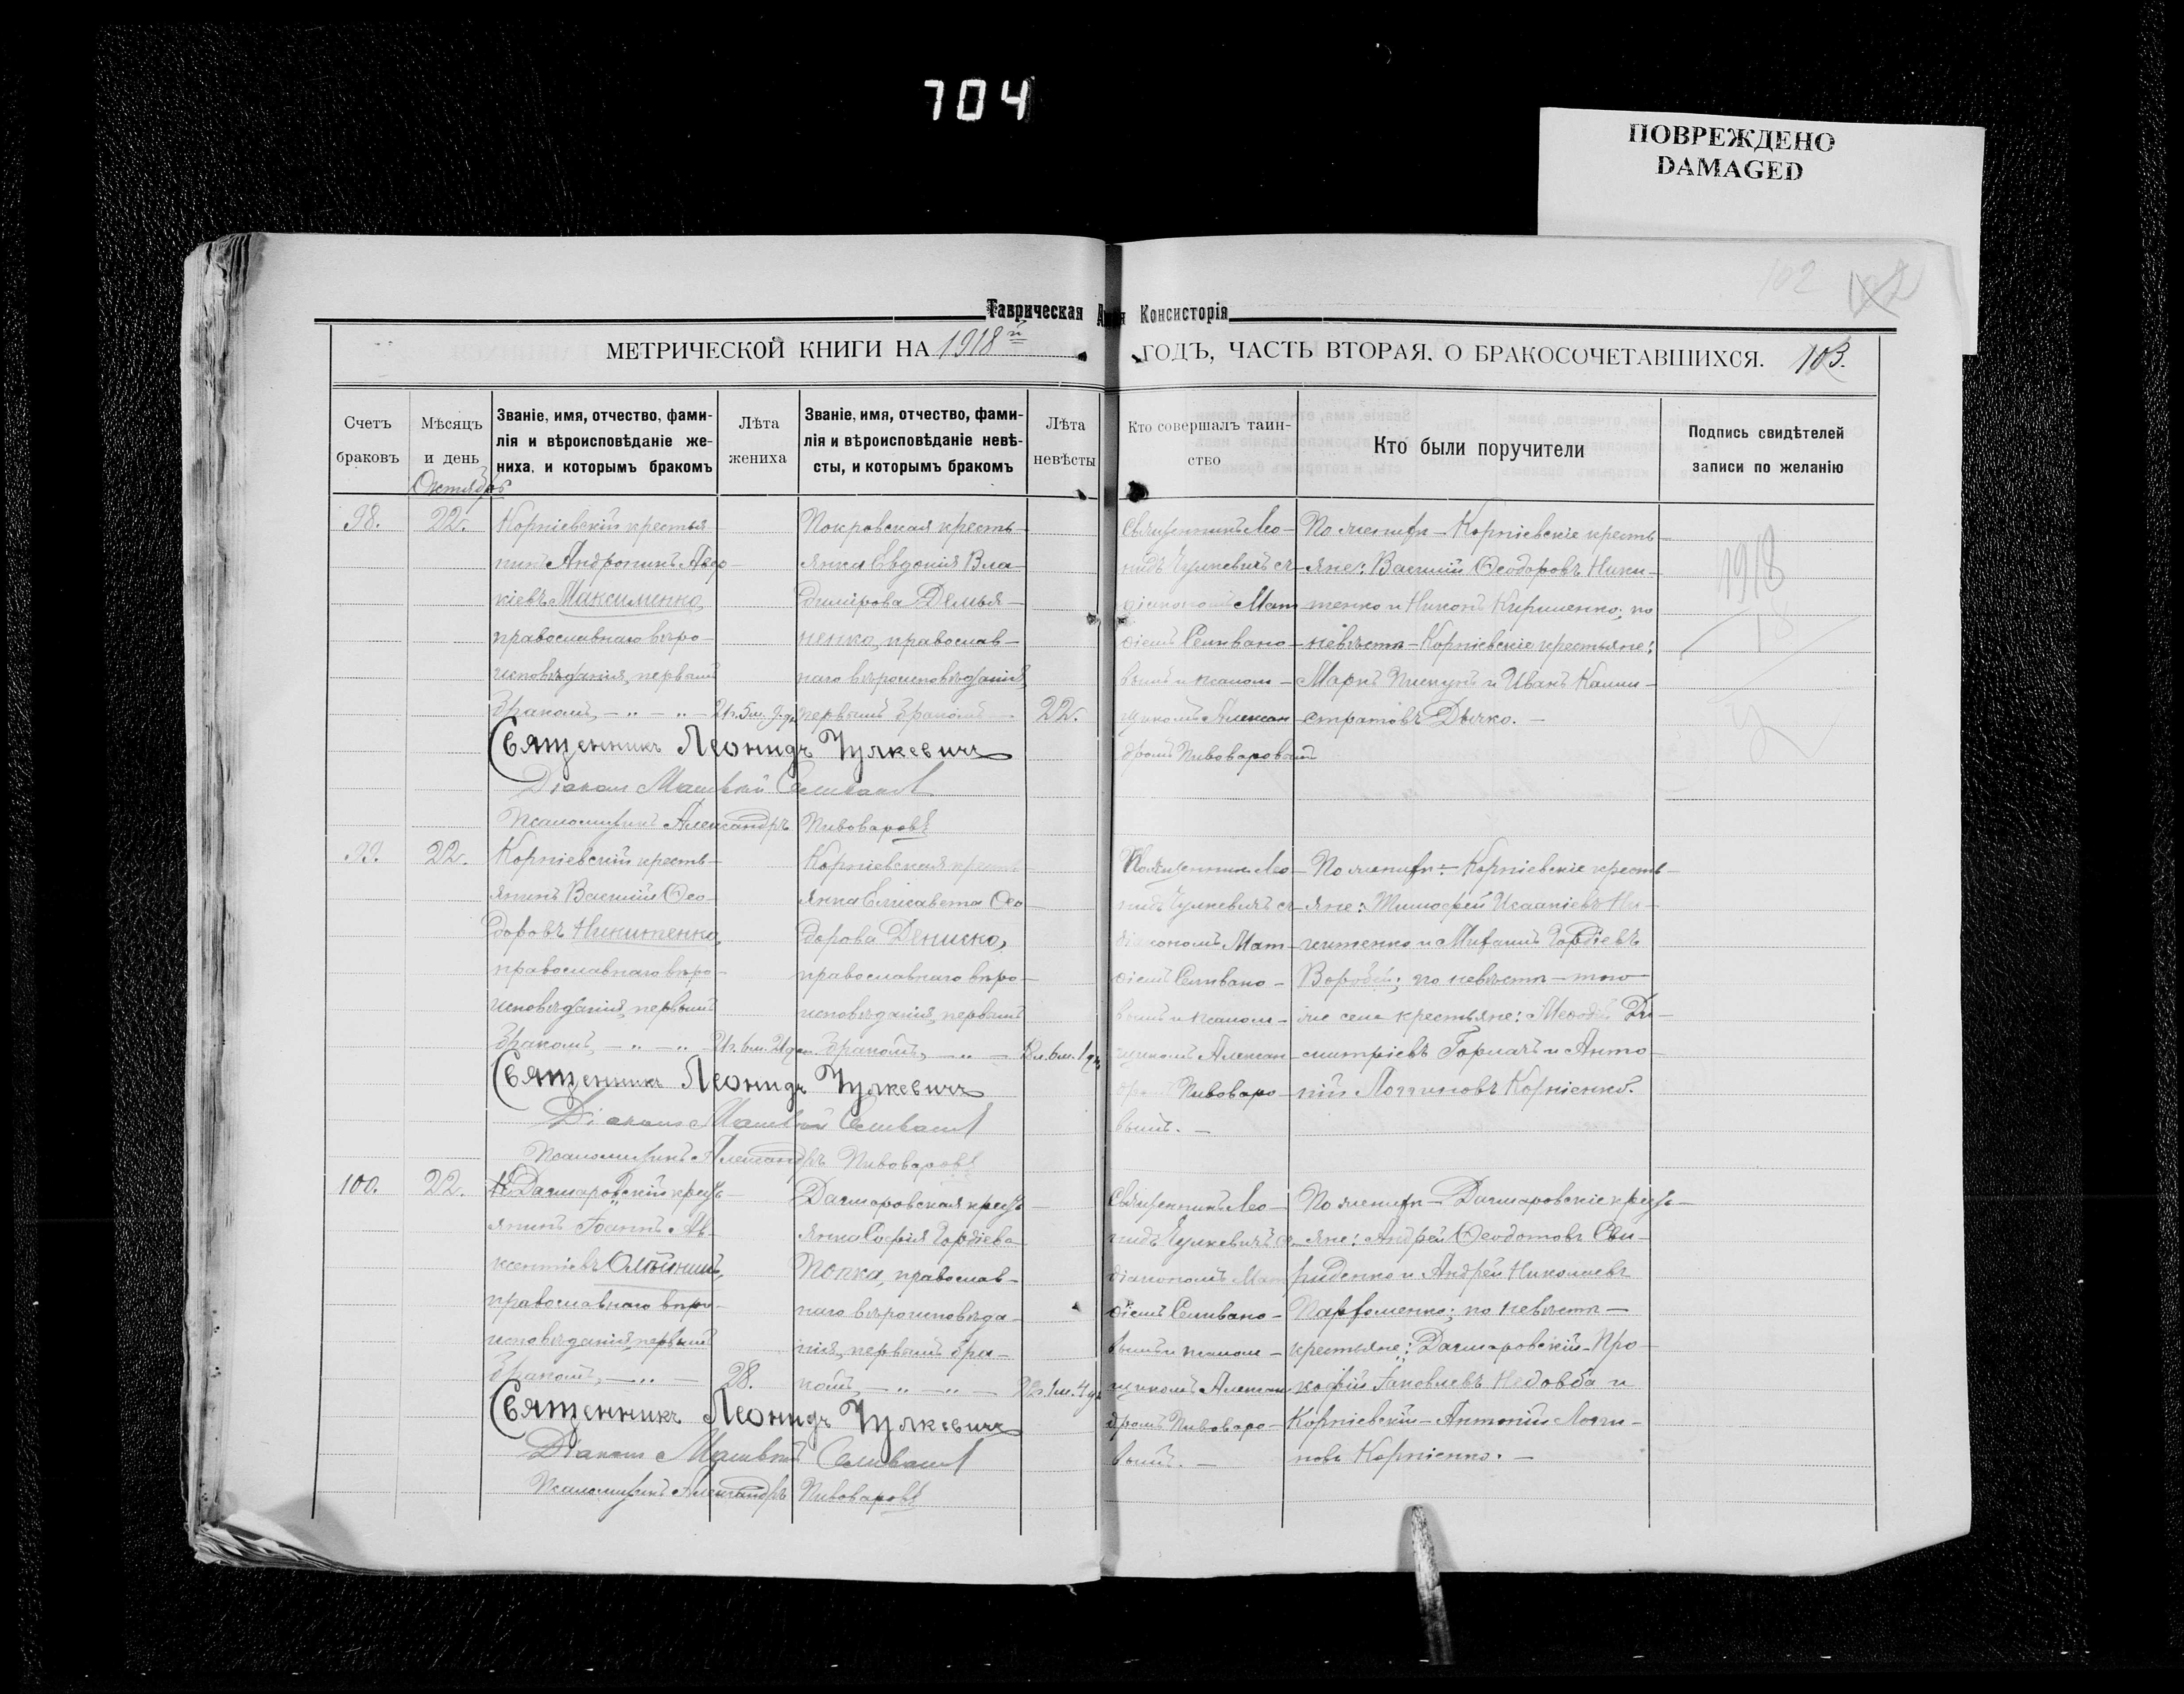 704
ПОВРЕЖДЕНО
DAMAGED
102
Таврическая Консисторія
МЕТРИЧЕСКОЙ КНИГИ НА 1918й ГОДЪ, ЧАСТЬ ВТОРАЯ, О БРАКОСОЧЕТАВШИХСЯ. 103.
Счетъ браковъ
Мѣсяцъ и день
Званіе, имя, отчество, фами-
лія и вѣроисповѣданіе же-
ниха, и которымъ бракомъ
Лѣта жениха
Званіе, имя, отчество, фами-
лія и вѣроисповѣданіе невѣ-
сты, и которымъ бракомъ
Лѣта невѣсты
Кто совершалъ таин-
ство
Кто были поручители
Подпись свидѣтелей
записи по желанію
Октябрь
98.
22.
Корніевскій крестья-
нинъ Андроникъ Авер-
кіевъ Максименко,
православнаго вѣро-
исповѣданія, первымъ
бракомъ, — „ — „ —
21г. 5м. 9д.
Покровская кресть-
янка Евдокія Вла-
димірова Демья-
ненко, православ-
наго вѣроисповѣданія,
первымъ бракомъ —
22.
Священникъ Лео-
нидъ Чулкевичъ съ
діакономъ Мат-
ѳіемъ Селивано-
вымъ и псалом-
щикомъ Алексан-
дромъ Пивоваровымъ
По женихѣ — Корніевскіе кресть-
яне: Василій Ѳеодоровъ Ники-
тенко и Никонъ Кириленко; по
невѣстѣ — Корніевскіе крестьяне:
Маркъ Пикунъ и Иванъ Калли-
стратовъ Дячко. —
1918
Священникъ Леонидъ Чулкевичъ
Діаконъ Матѳій Селивановъ
Псаломщикъ Александръ Пивоваровъ
99.
22.
Корніевскій кресть-
янинъ Василій Ѳео-
доровъ Никитенко,
православнаго вѣро-
исповѣданія, первымъ
бракомъ, — „ — „
21г. 6м. 21дн.
Корніевская кресть-
янка Елисавета Ѳео-
дорова Дениско,
православнаго вѣро-
исповѣданія, первымъ
бракомъ, — „ —
Священникъ Лео-
нидъ Чулкевичъ съ
діакономъ Мат-
ѳіемъ Селивано-
вымъ и псалом-
щикомъ Алексан-
дромъ Пивоваро-
вымъ. —
По женихѣ: — Корніевскіе кресть-
яне: Тимоѳей Исаакіевъ Ни-
китенко и Михаилъ Гордіевъ
Воробей; по невѣстѣ — того
же села крестьяне: Меѳодій Ди-
митріевъ Горпачъ и Анто-
ній Логгиновъ Корніенко.
Священникъ Леонидъ Чулкевичъ
Діаконъ Матѳій Селивановъ
Псаломщикъ Александръ Пивоваровъ
100.
22.
Дагмаровскій крест-
янинъ Іоаннъ Ав-
ксентіевъ Олѣйникъ,
православнаго вѣро-
исповѣданія, первымъ
бракомъ, — „ —
28.
Дагмаровская крест-
янка Софія Гордіева
Попка, православ-
наго вѣроисповѣда-
нія, первымъ бра-
комъ, — „ — „ —
22г. 1м. 4дн.
Священникъ Лео-
нидъ Чулкевичъ съ
діакономъ Мат-
ѳіемъ Селивано-
вымъ и псалом-
щикомъ Алексан-
дромъ Пивоваро-
вымъ. —
По женихѣ — Дагмаровскіе крест-
яне: Андрей Ѳеодотовъ Сви-
риденко и Андрей Николаевъ
Парфоменко; по невѣстѣ —
крестьяне: Дагмаровскій — Про-
кофій Іаковлевъ Недовба и
Корніевскій — Антоній Логги-
новъ Корніенко. —
Священникъ Леонидъ Чулкевичъ
Діаконъ Матѳій Селивановъ
Псаломщикъ Александръ Пивоваровъ